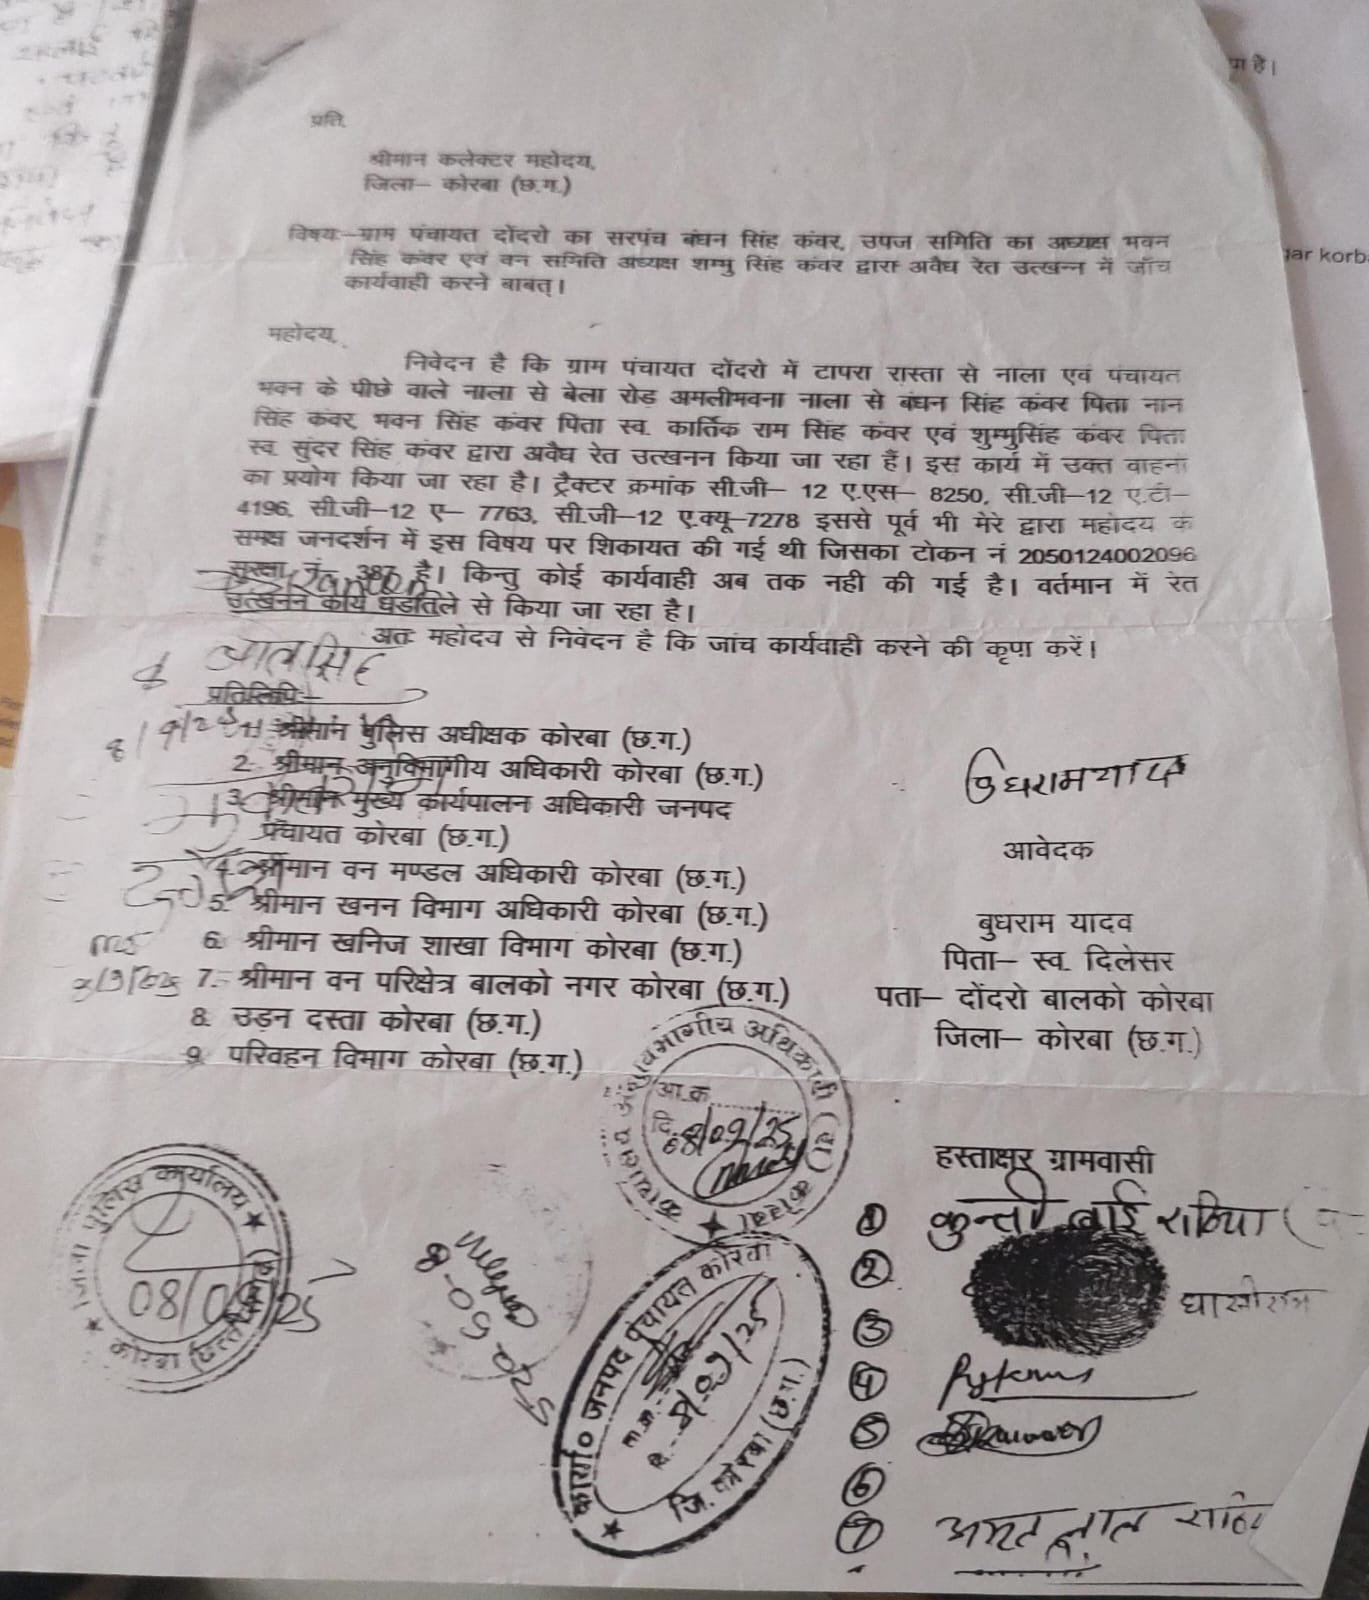 प्रति,
श्रीमान कलेक्टर महोदय,
जिला– कोरबा (छ.ग.)
विषयः–ग्राम पंचायत दोंदरो का सरपंच बंधन सिंह कंवर, उपज समिति का अध्यक्ष भवन
सिंह कंवर एवं वन समिति अध्यक्ष शम्भु सिंह कंवर द्वारा अवैध रेत उत्खन्न में जाँच
कार्यवाही करने बाबत्।
महोदय,
निवेदन है कि ग्राम पंचायत दोंदरो में टापरा रास्ता से नाला एवं पंचायत
भवन के पीछे वाले नाला से बेला रोड़ अमलीमवना नाला से बंधन सिंह कंवर पिता नान
सिंह कंवर, भवन सिंह कंवर पिता स्व. कार्तिक राम सिंह कंवर एवं शुम्मुसिंह कंवर पिता
स्व. सुंदर सिंह कंवर द्वारा अवैध रेत उत्खनन किया जा रहा हैं। इस कार्य में उक्त वाहनों
का प्रयोग किया जा रहा है। ट्रैक्टर क्रमांक सी.जी– 12 ए.एस– 8250, सी.जी–12 ए.टी–
4196, सी.जी–12 ए– 7763, सी.जी–12 ए.क्यू–7278 इससे पूर्व भी मेरे द्वारा महोदय के
समक्ष जनदर्शन में इस विषय पर शिकायत की गई थी जिसका टोकन नं 2050124002096
सुरक्षा नं. 387 है। किन्तु कोई कार्यवाही अब तक नही की गई है। वर्तमान में रेत
उत्खनन कार्य धडातले से किया जा रहा है।
अतः महोदय से निवेदन है कि जांच कार्यवाही करने की कृपा करें।
प्रतिलिपिः–
श्रीमान पुलिस अधीक्षक कोरबा (छ.ग.)
2. श्रीमान अनुविभागीय अधिकारी कोरबा (छ.ग.)
3. श्रीमान मुख्य कार्यपालन अधिकारी जनपद
पंचायत कोरबा (छ.ग.)
बुधराम यादव
आवेदक
4. श्रीमान वन मण्डल अधिकारी कोरबा (छ.ग.)
5. श्रीमान खनन विभाग अधिकारी कोरबा (छ.ग.)
6. श्रीमान खनिज शाखा विभाग कोरबा (छ.ग.)
7. श्रीमान वन परिक्षेत्र बालको नगर कोरबा (छ.ग.)
8. उड़न दस्ता कोरबा (छ.ग.)
9. परिवहन विभाग कोरबा (छ.ग.)
बुधराम यादव
पिता– स्व. दिलेसर
पता– दोंदरो बालको कोरबा
जिला– कोरबा (छ.ग.)
कार्यालय अनुविभागीय अधिकारी (रा) कोरबा
आ.क्र.
दि. 08/09/25
जिला पुलिस कार्यालय
08/09/25
कोरबा
कार्या० जनपद पंचायत कोरबा
जि. कोरबा (छ.ग.)
हस्ताक्षर ग्रामवासी
① कुन्ती बाई राठिया
②
③
④
⑤
⑥
⑦
पा है।
gar korba